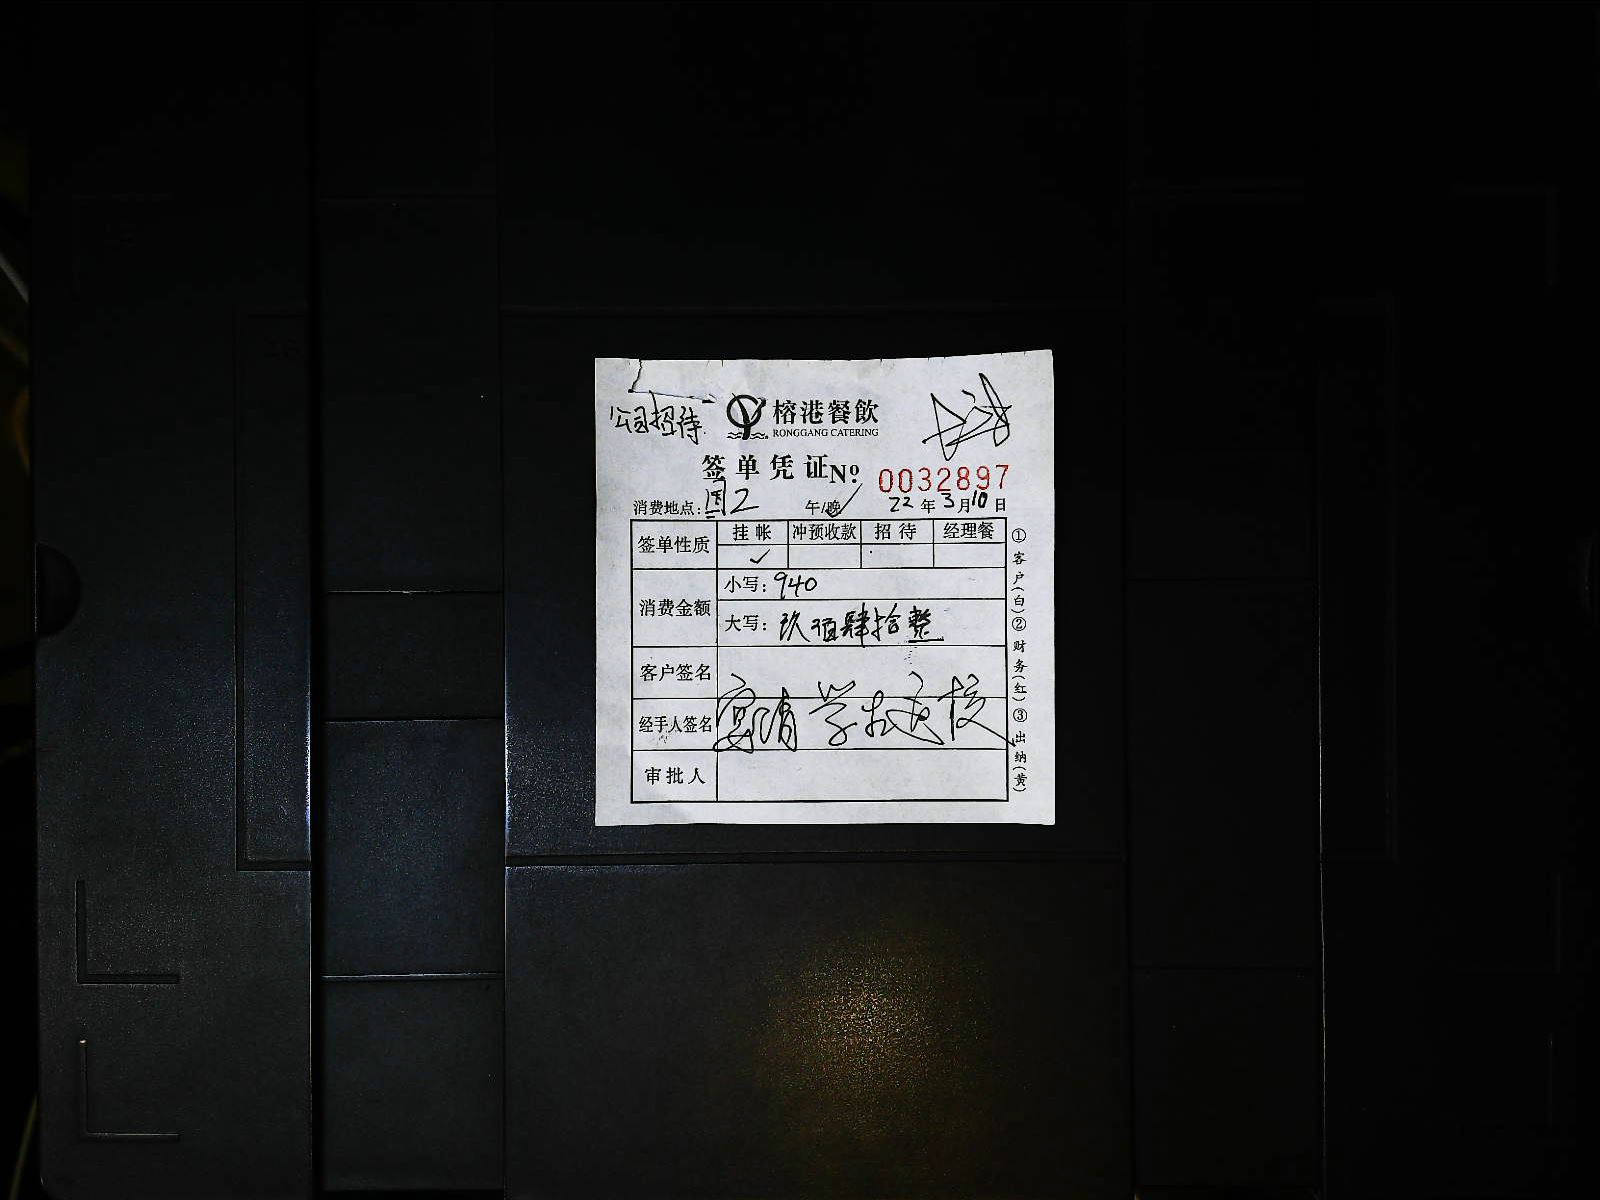 公司招待
榕港餐飲
RONGGANG CATERING
签单凭证 Nº 0032897
消费地点: 午/晚 22年3月10日
签单性质 挂帐 冲预收款 招待 经理餐
✓
消费金额 小写: 940
大写: 玖佰肆拾整
客户签名
经手人签名
审批人
①客户(白)②财务(红)③出纳(黄)